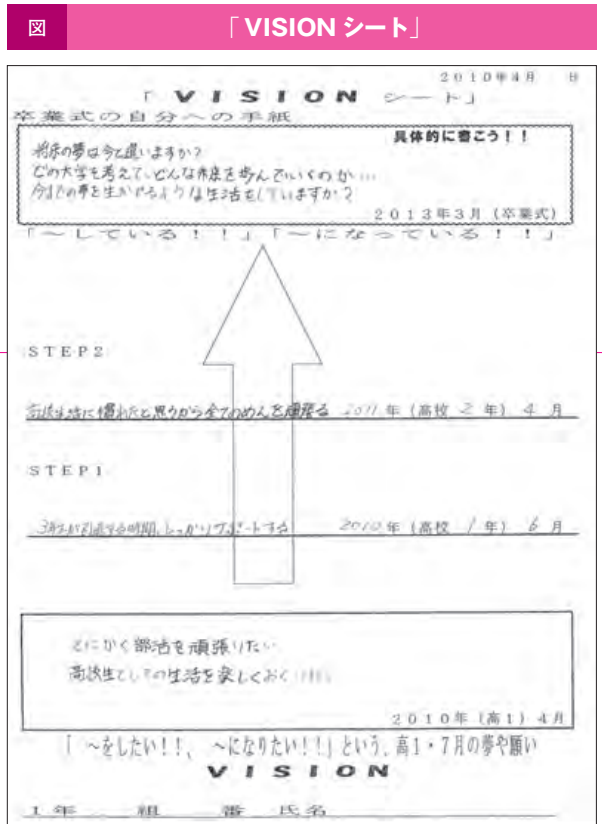 図
「VISION シート」
2010年4月 日
「VISION シート」
卒業式の自分への手紙
具体的に書こう！！
将来の夢は今と違いますか？
どの大学を考えて、どんな未来を歩んでいくのか…
今までの夢を生かせるような生活をしていますか？
2013年3月（卒業式）
「～している！！」「～になっている！！」
STEP2
高校生活に慣れたと思うから全てのめんを頑張る 2011年（高校2年）4月
STEP1
3年生が引退する時期、しっかりサポートする 2010年（高校1年）6月
とにかく部活を頑張りたい
高校生としての生活を楽しくおく
2010年（高1）4月
「～をしたい！！、～になりたい！！」という、高1・7月の夢や願い
VISION
1年 組 番 氏名